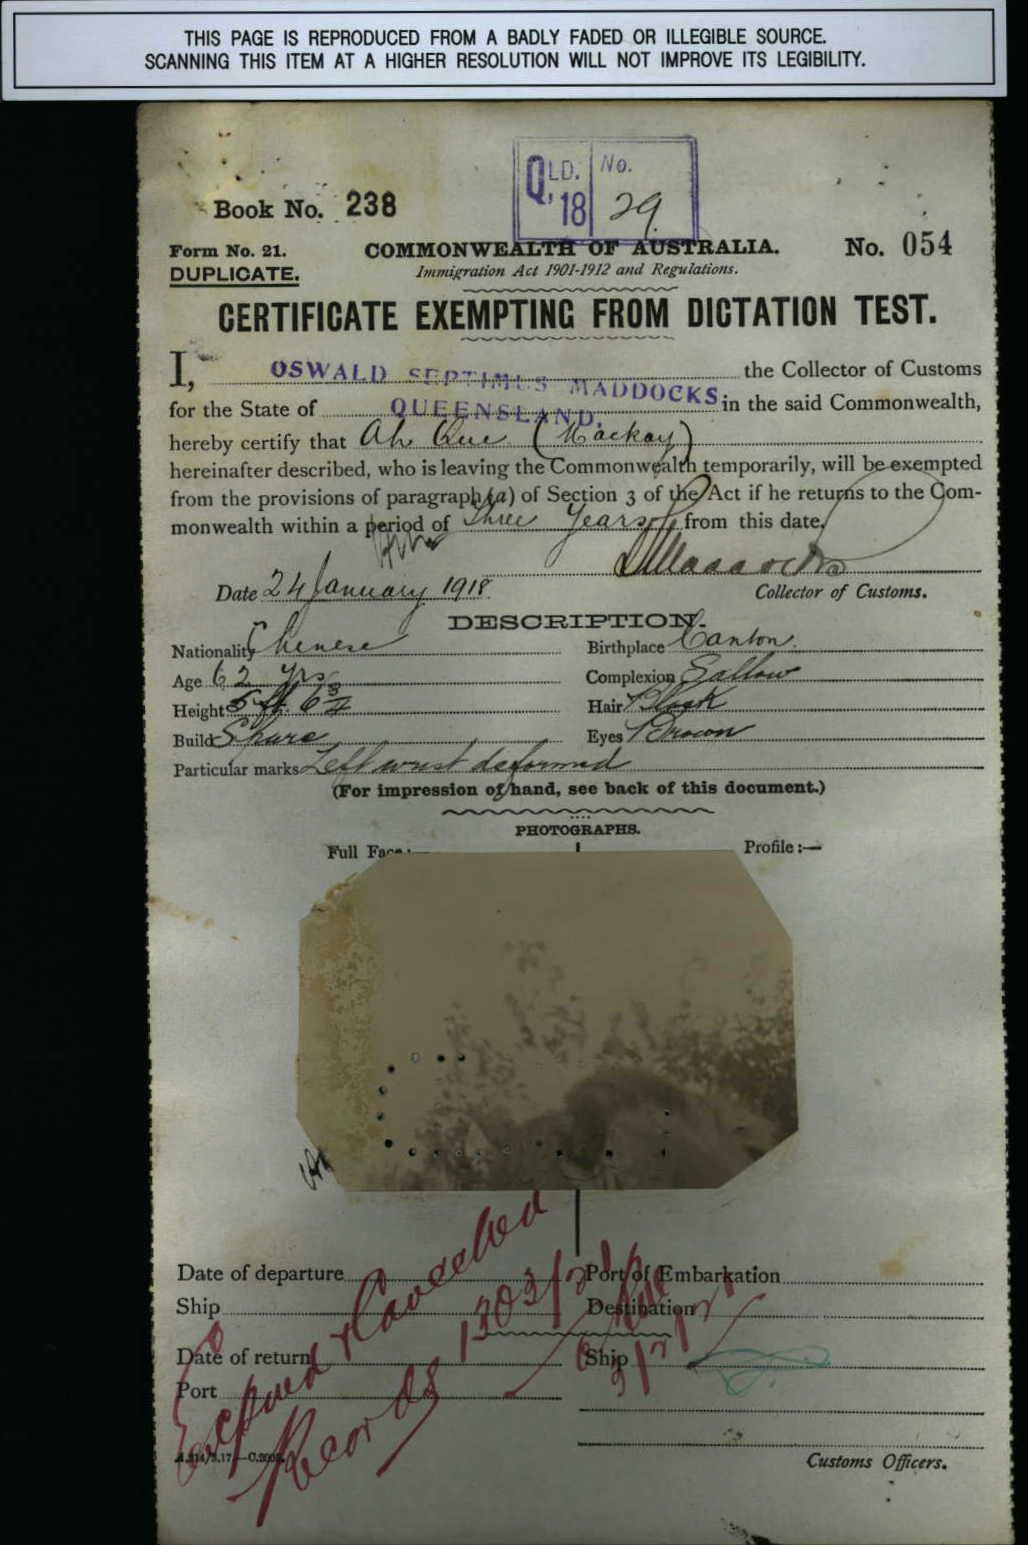 THIS PAGE IS REPRODUCED FROM A BADLY FADED OR ILLEGIBLE SOURCE.
SCANNING THIS ITEM AT A HIGHER RESOLUTION WILL NOT IMPROVE ITS LEGIBILITY.
QLD. No.
18 29
Book No. 238
Form No. 21. COMMONWEALTH OF AUSTRALIA. No. 054
DUPLICATE. Immigration Act 1901-1912 and Regulations.
CERTIFICATE EXEMPTING FROM DICTATION TEST.
I, OSWALD SEPTIMUS MADDOCKS the Collector of Customs
for the State of QUEENSLAND. in the said Commonwealth,
hereby certify that Ah Que (Mackay)
hereinafter described, who is leaving the Commonwealth temporarily, will be exempted
from the provisions of paragraph (a) of Section 3 of the Act if he returns to the Com-
monwealth within a period of Three Years from this date.
Date 24 January 1918 Collector of Customs.
DESCRIPTION.
Nationality Chinese Birthplace Canton.
Age 62 yrs Complexion Sallow
Height 5 ft 6 3/4 Hair Black
Build Spare Eyes Brown
Particular marks Left wrist deformed
(For impression of hand, see back of this document.)
PHOTOGRAPHS.
Full Face:— Profile:—
Date of departure Port of Embarkation
Ship Destination
Date of return Ship
Port
Expired & Cancelled
Records 1303/21
Customs Officers.